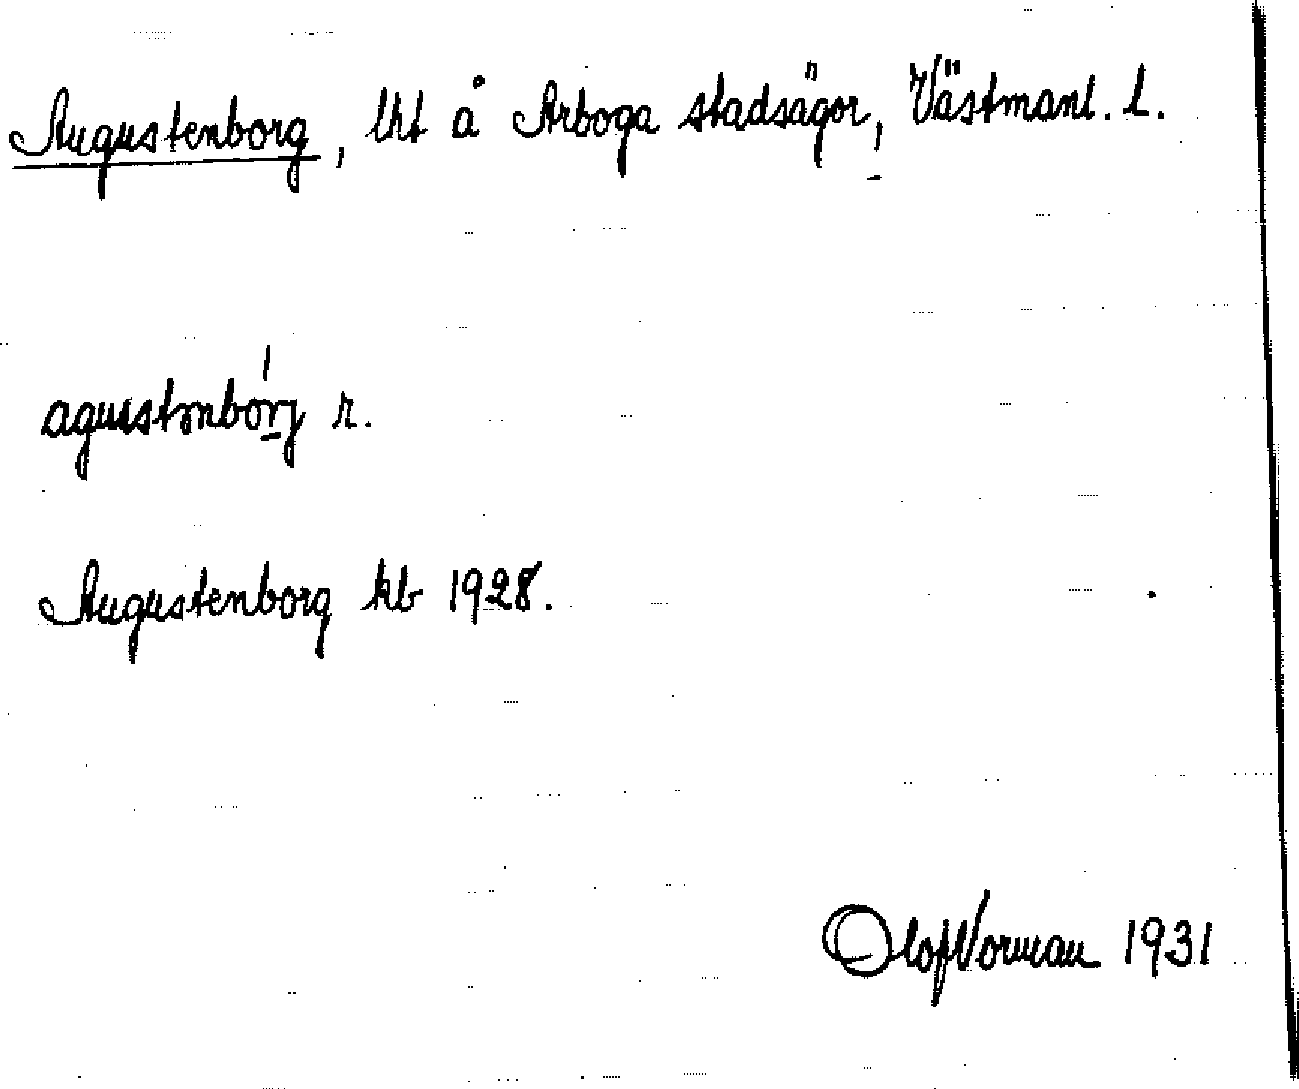 Augustenborg, lht å Arboga stadsägor, Västmanl. l.
agustənbórj r.
Augustenborg kb 1928.
Olof Norman 1931